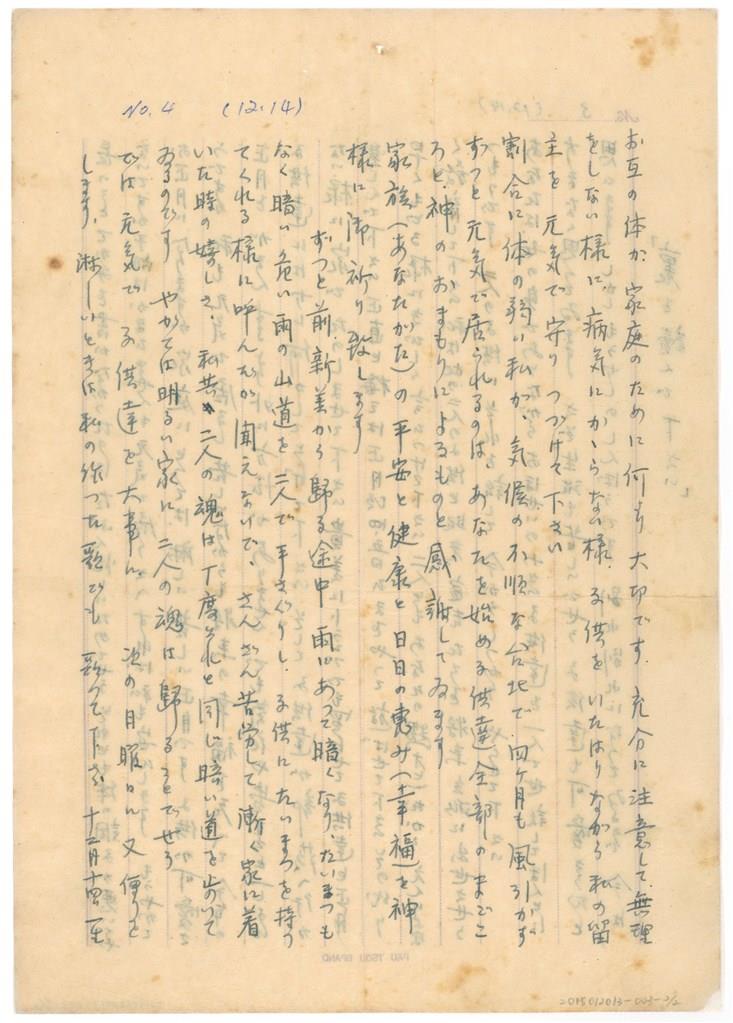 No. 4 (12.14)
お互の体が家庭のために何より大切です．充分に注意して，無理
をしない様に，病気にかゝらない様，子供をいたはりながら私の留
主を元気で守りつづけて下さい
割合に体の弱い私が，気候の不順な台北で四ケ月も風引かず
ずつと元気で居られるのは，あなたを始める子供達全部のまごこ
ろと，神のおまもりによるものと感謝してゐます
家族（あなたがた）の平安と健康と日日の恵み（幸福）を神
様に御祈り致します
ずつと前，新美から歸る途中雨にあつて暗くなり，たいまつも
なく暗い危い雨の山道を二人で手さぐりし，子供にたいまつを持つ
てくれる様に呼んだが聞えないで，さんざん苦労して漸く家に着
いた時の嬉しさ．私共二人の魂は丁度それと同じ暗い道を歩いて
ゐるのです やがては明るい家に二人の魂は歸ることでせう
では元気で子供達を大事に．次の日曜日に又便りを
します，淋しいときは私の作つた歌でも歌つて下さい 十二月十四日 一生
PAU TSOU BRAND
2015012013-003-2/2